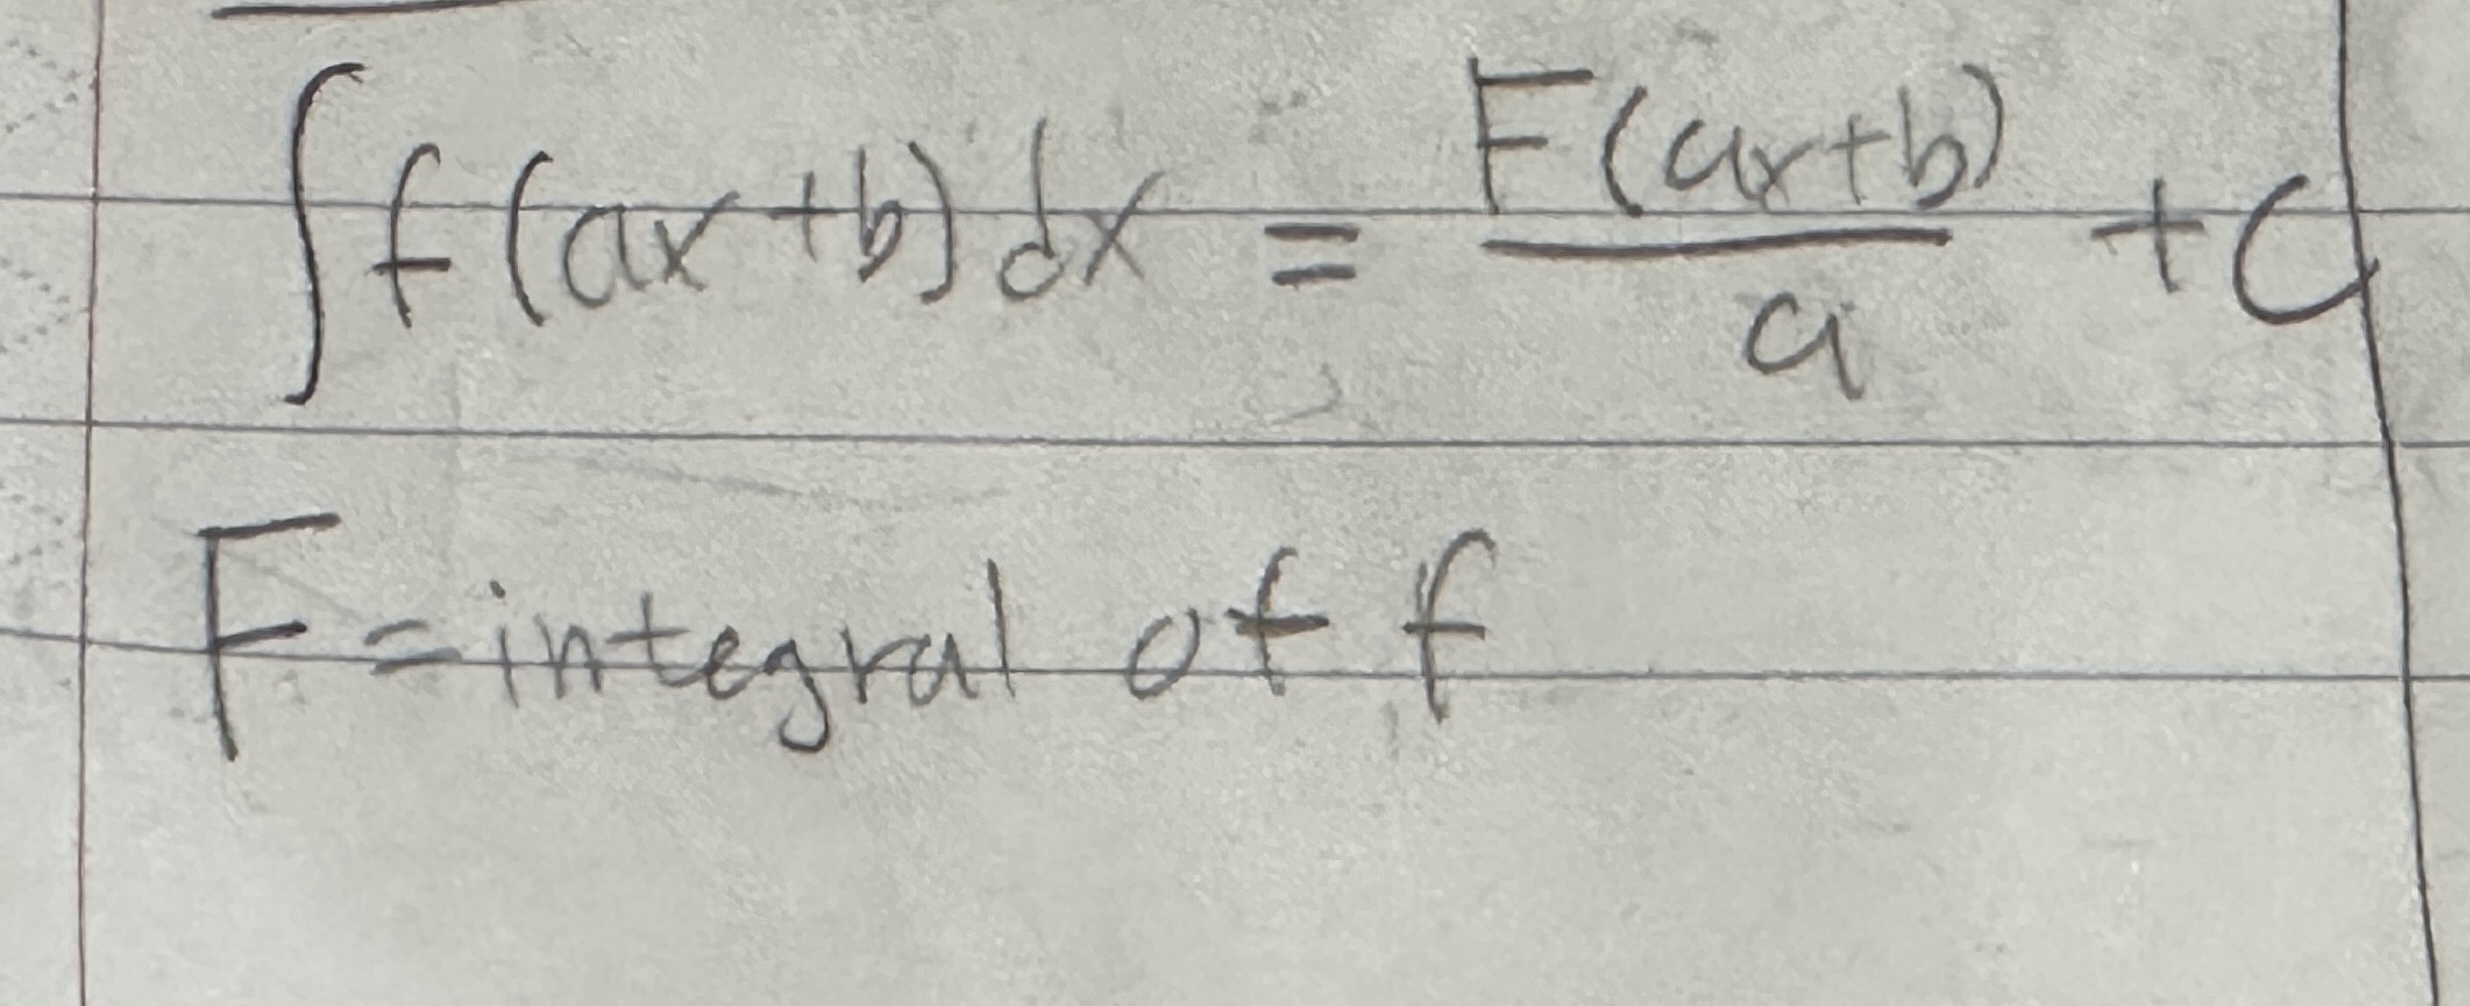 ∫f(ax+b)dx = F(ax+b)/a + C
F=integral of f